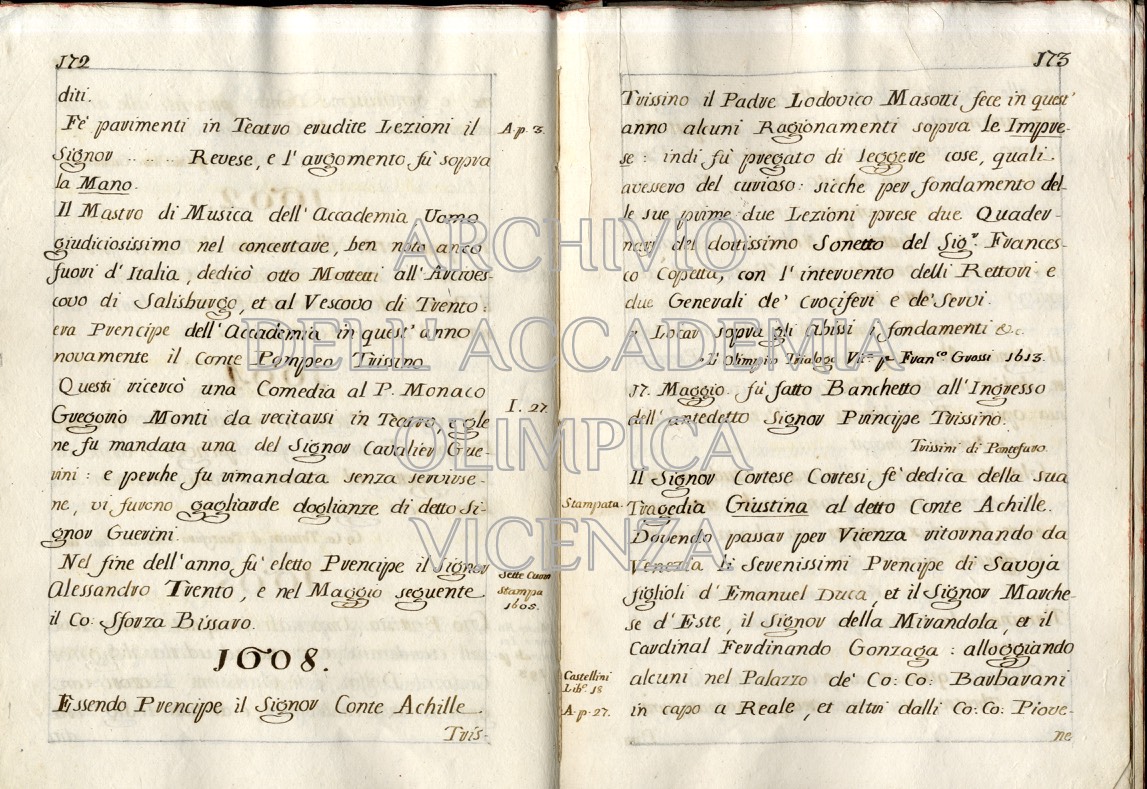 172
diti.
Fe' parimenti in Teatro erudite Lezioni il
Signor ... ... Revese, e l' argomento fù sopra
la Mano.
Il Mastro di Musica dell' Accademia Uomo
giudiciosissimo nel concertare, ben noto anco
fuori d' Italia, dedicò otto Mottetti all' Arcives-
covo di Salisburgo, et al Vescovo di Trento:
era Prencipe dell' Accademia in quest' anno
novamente il Conte Pompeo Trissino.
Questi ricercò una Comedia al P. Monaco
Gregorio Monti da recitarsi in Teatro, e gle
ne fu mandata una del Signor Cavalier Gue-
rini: e perche fu rimandata senza servirse-
ne, vi furono gagliarde doglianze di detto Si-
gnor Guerini.
Nel fine dell' anno fù eletto Prencipe il Signor
Alessandro Trento, e nel Maggio seguente
il Co: Sforza Bissaro.
1608.
Essendo Prencipe il Signor Conte Achille
Tris-
A. p. 3.
I. 27.
stampa
1605.
173
Trissino il Padre Lodovico Masotti fece in quest'
anno alcuni Ragionamenti sopra le Impre-
se: indi fù pregato di leggere cose, quali
avessero del curioso: sicche per fondamento del-
le sue prime due Lezioni prese due Quader-
narj del dottissimo Sonetto del Sig.r Frances-
co Copetta, con l' intervento delli Rettori e
due Generali de' Crociferi e de' Servi.
Locar sopra gli Abissi i fondamenti &c.
Olimpico Trialogo Vic.a p Fran.co Grossi 1613.
17. Maggio. fù fatto Banchetto all' Ingresso
dell' antedetto Signor Principe Trissino.
Trissini di Pontefuro.
Il Signor Cortese Cortesi fe' dedica della sua
Tragedia Giustina al detto Conte Achille.
Dovendo passar per Vicenza ritornando da
Venezia li Serenissimi Prencipe di Savoja
figlioli d' Emanuel Duca, et il Signor Marche-
se d' Este, il Signor della Mirandola, e il
Cardinal Ferdinando Gonzaga: alloggiando
alcuni nel Palazzo de' Co: Co: Barbarani
in capo a Reale, et altri dalli Co: Co: Piove-
ne
Stampata.
Castellini
Lib.o 18
A. p. 27.
ARCHIVIO
DELL'ACCADEMIA
OLIMPICA
VICENZA